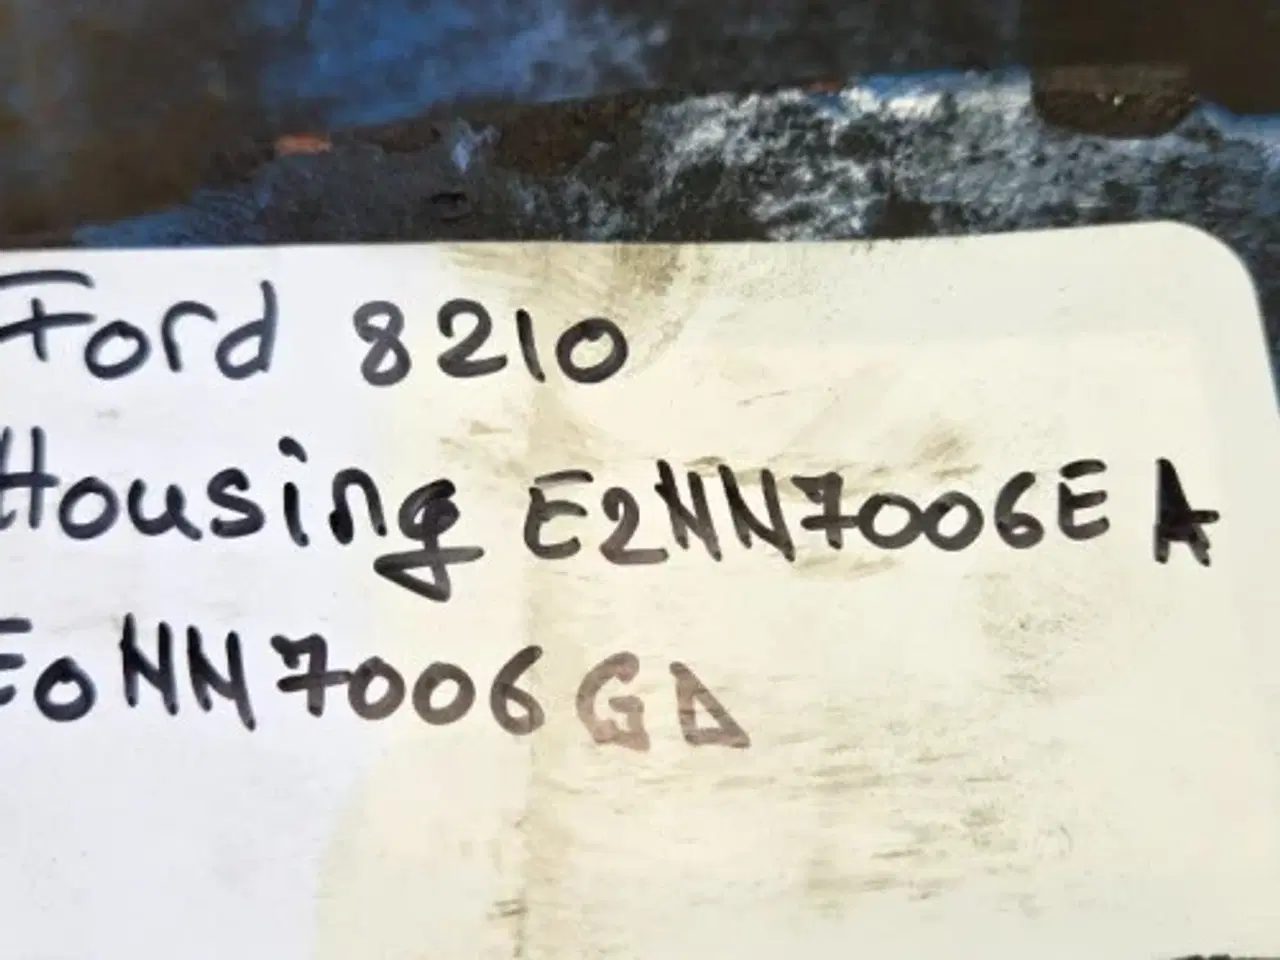 Ford 8210
Housing E2NN7006EA
E0NN7006GD